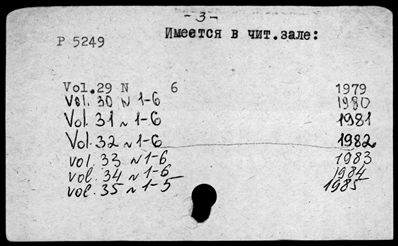 - 3 -
Р 5249 Имеется в чит.зале:
Vol.29 N 6 1979
Vol. 30 N 1-6 1980
Vol. 31 N 1-6 1981
Vol. 32 N 1-6 1982
vol. 33 N 1-6 1983
vol. 34 N 1-6 1984
vol. 35 N 1-5 1985